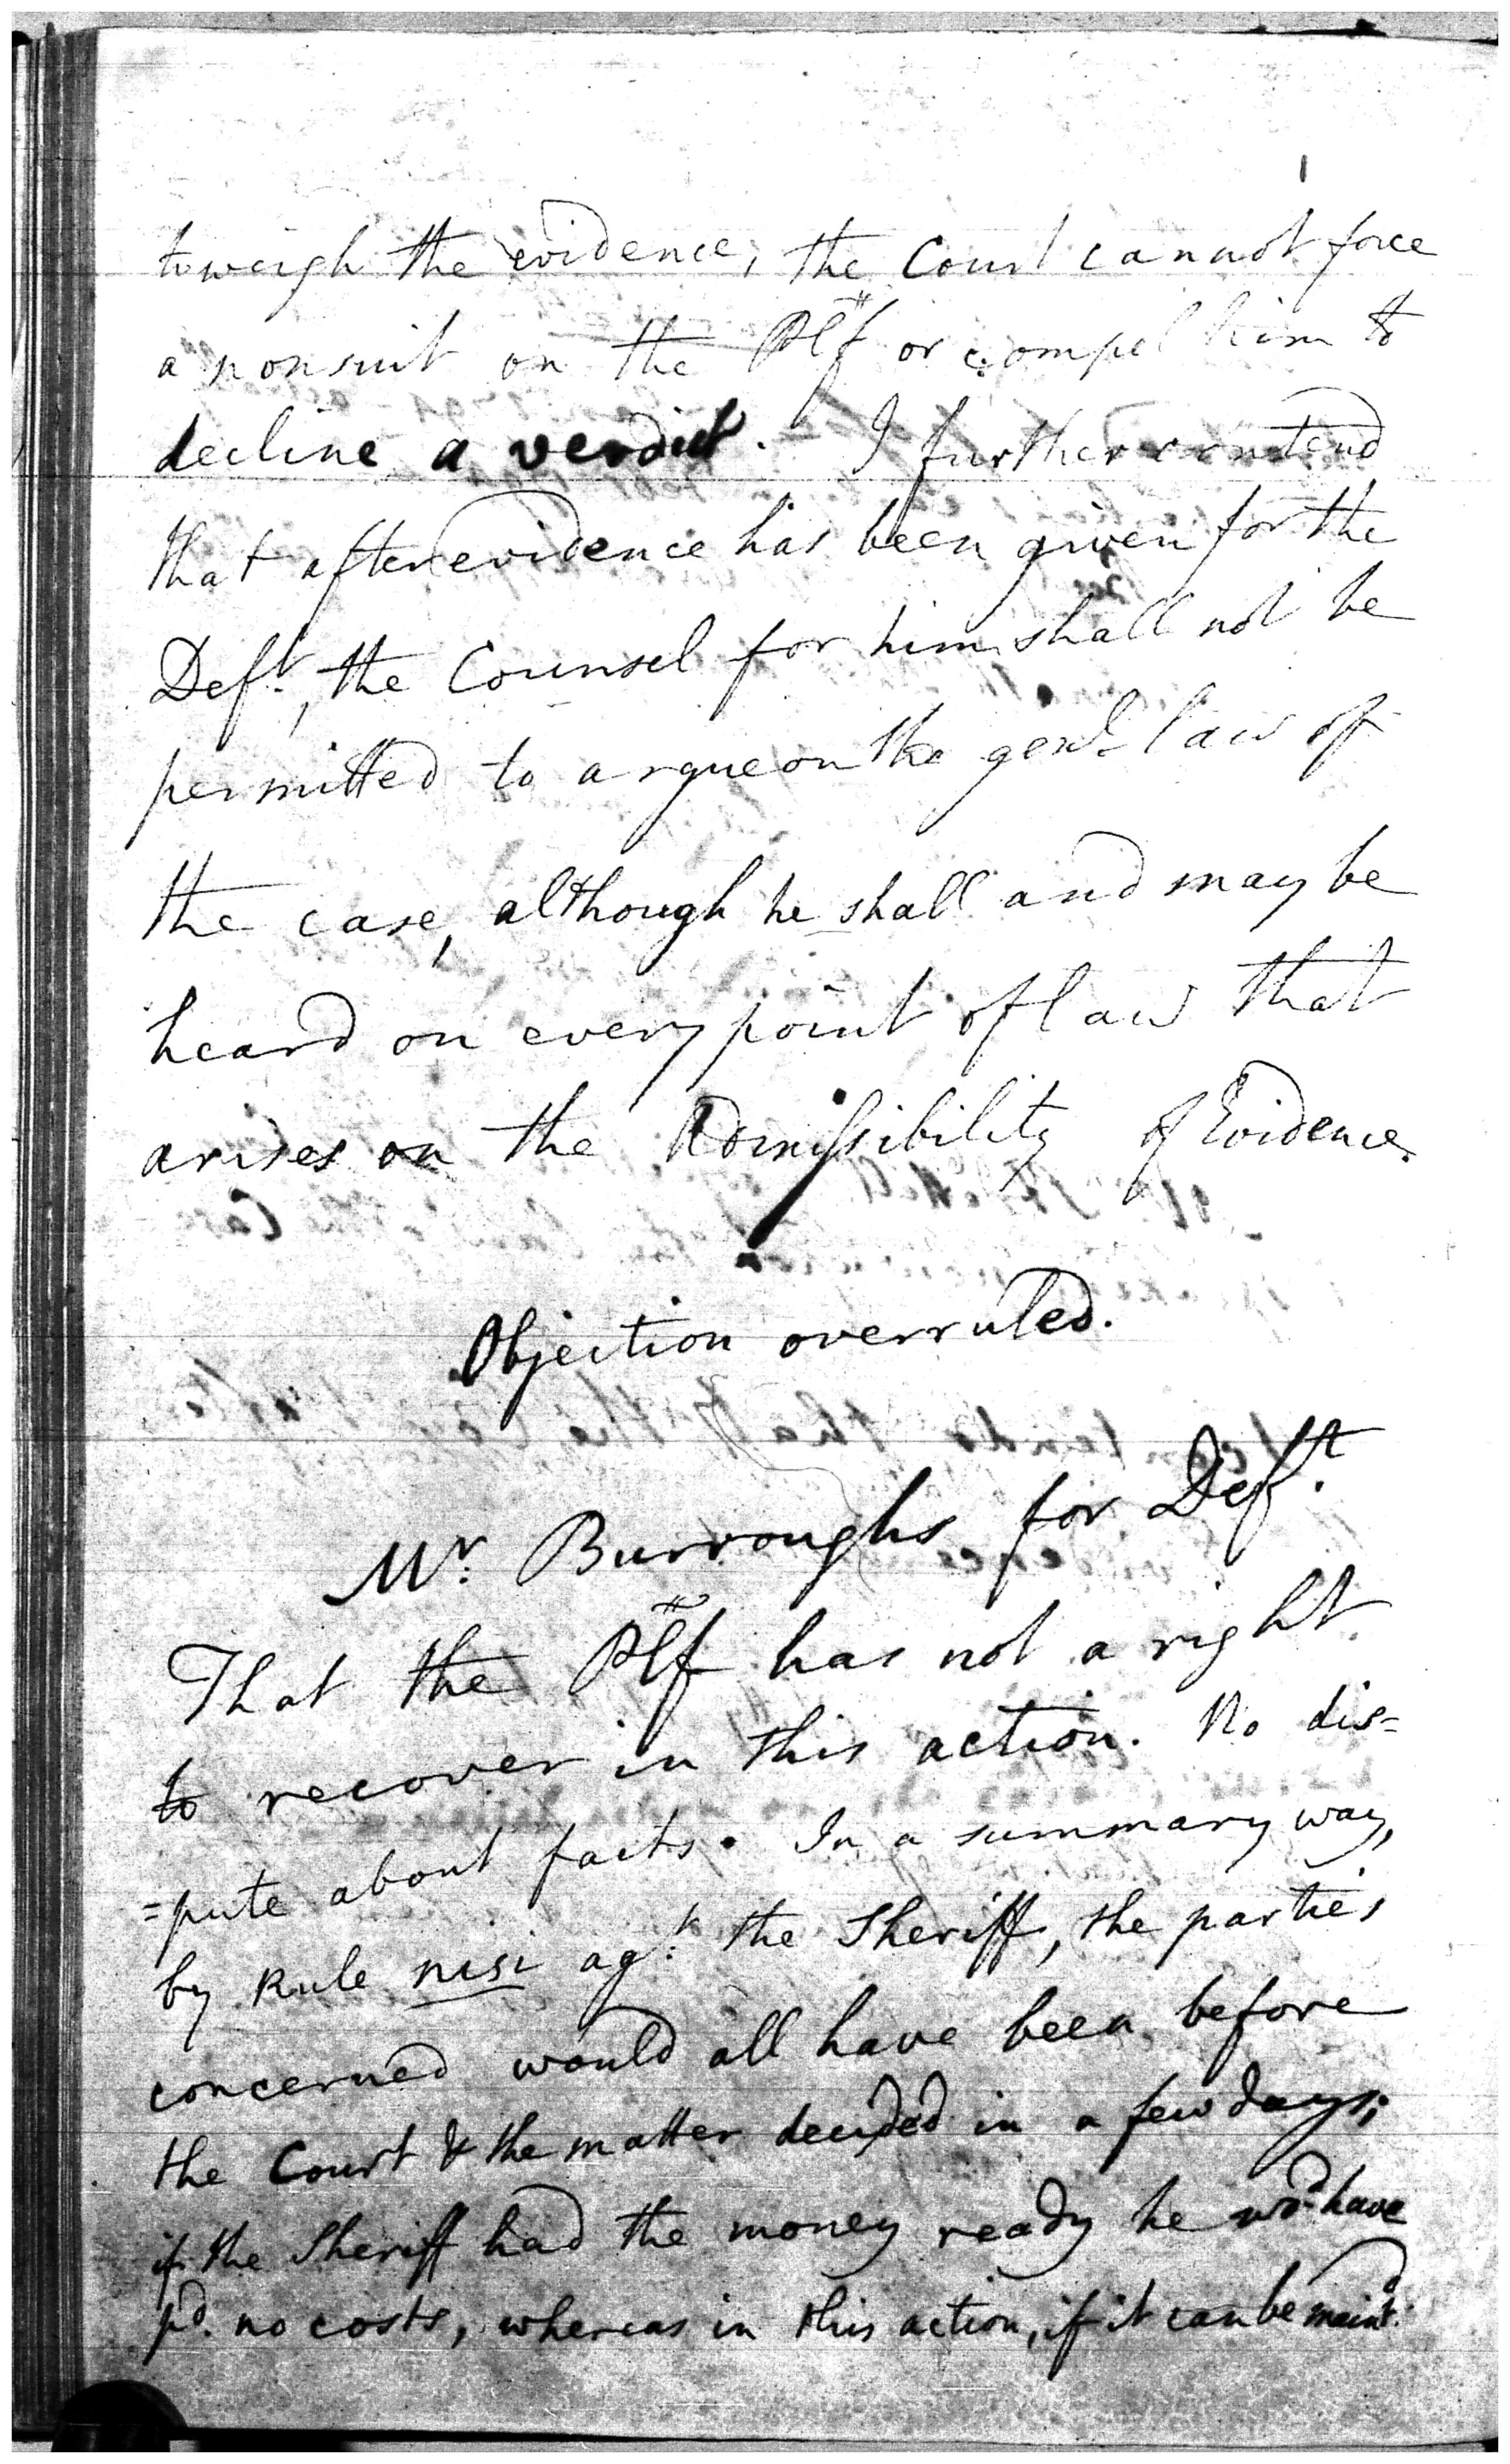 to weigh the evidence, the Court cannot force
a nonsuit on the Plff or compel him to
decline a verdict. I further contend
that after evidence has been given for the
Deft., the Counsel for him shall not be
permitted to argue on the genl. law of
the case, although he shall and may be
heard on every point of law that
arises on the Admissibility of Evidence.
Objection overruled.
Mr. Burroughs for Deft.
That the Plff has not a right
to recover in this action. No dis=
=pute about facts. In a summary way,
by Rule nisi agt. the Sheriff, the parties
concerned would all have been before
the Court & the matter decided in a few days;
if the Sheriff had the money ready he wd. have
pd. no costs, whereas in this action, if it can be maintd.